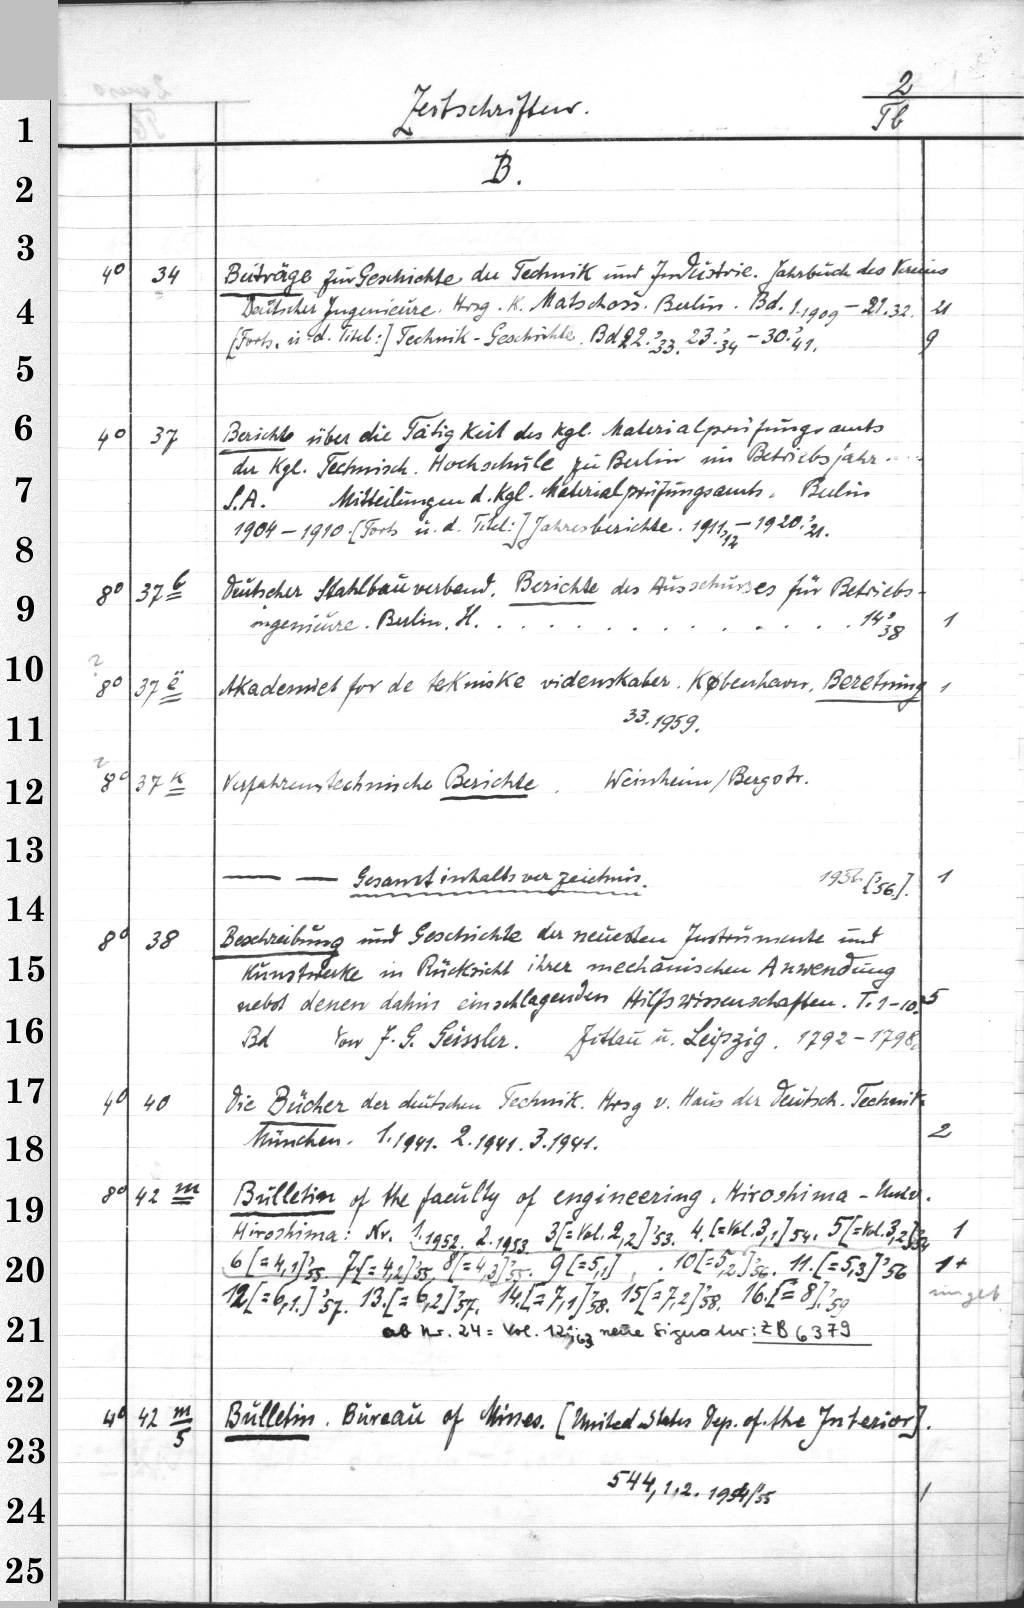 Zeitschriften. 2
Tb
B.
4° 34 Beiträge zur Geschichte der Technik und Industrie. Jahrbuch des Vereins
Deutscher Ingenieure. Hrsg. K. Matschoss. Berlin. Bd. 1.1909 – 21.32. 21
[Forts. u. d. Titel:] Technik-Geschichte. Bd 22.'33. 23.'34 – 30.'41. 9
4° 37 Berichte über die Tätigkeit des Kgl. Materialprüfungsamts
der Kgl. Technisch. Hochschule zu Berlin im Betriebsjahr....
S.A. Mitteilungen d. Kgl. Materialprüfungsamts. Berlin
1904 – 1910. [Forts u. d. Titel:] Jahresberichte. 1911/12 – 1920.'21.
8° 37 b Deutscher Stahlbauverband. Berichte des Ausschusses für Betriebs-
ingenieure. Berlin. H. . . . . . . . . . . . . . 14.'38 1
2
8° 37 ë Akademiet for de tekniske videnskaber. København. Beretning 1
33.1959.
2
8° 37 k Verfahrenstechnische Berichte. Weinheim/Bergstr.
— — Gesamtinhaltsverzeichnis. 1956 ['56]. 1
8° 38 Beschreibung und Geschichte der neuesten Instrumente und
Kunstwerke in Rücksicht ihrer mechanischen Anwendung
nebst denen dahin einschlagenden Hilfswissenschaften. T. 1–10. 5
Bd Von J. G. Geissler. Zittau u. Leipzig. 1792 – 1798.
4° 40 Die Bücher der deutschen Technik. Hrsg v. Haus der Deutsch. Technik.
München. 1.1941. 2.1941. 3.1941. 2
8° 42 m Bulletin of the faculty of engineering, Hiroshima-Univ.
Hiroshima: Nr. 1.1952. 2.1953. 3[=Vol.2,2]'53. 4.[=Vol.3,1]'54. 5[=Vol.3,2]'54 1
6[=4,1]'55. 7.[=4,2]'55. 8[=4,3]'55. 9[=5,1], . 10[=5,2]'56. 11.[=5,3]'56 1+
12[=6,1.]'57. 13.[=6,2]'57. 14.[=7,1]'58. 15[=7,2]'58. 16.[=8].'59 ungeb
ab Nr. 24 = Vol. 12,63 neue Signatur: ZB 6379
4° 42 m/5 Bulletin. Bureau of Mines. [United States Dep. of the Interior].
544,1,2. 1954/55 1
1
2
3
4
5
6
7
8
9
10
11
12
13
14
15
16
17
18
19
20
21
22
23
24
25